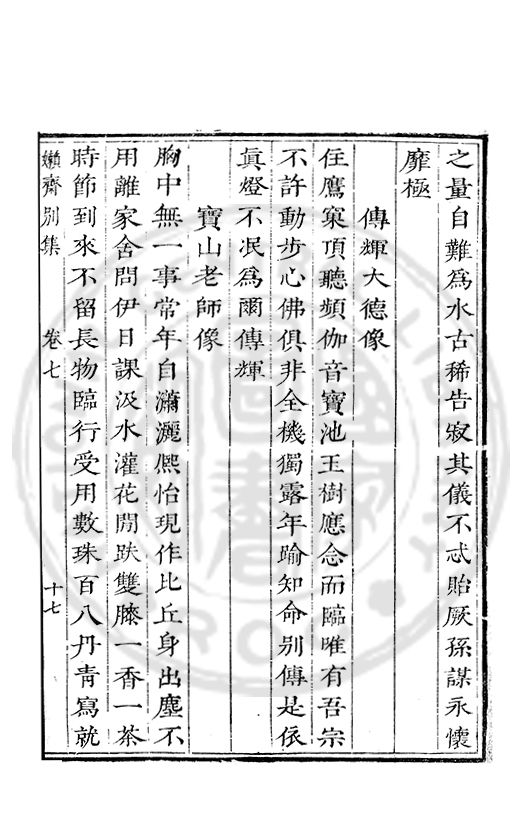 之量自難爲水古稀告寂其儀不忒貽厥孫謀永懷
靡極
傳輝大德像
住鷹窠頂聽頻伽音寶池玉樹應念而臨唯有吾宗
不許動步心佛俱非全機獨露年踰知命別傳是依
眞燈不泯爲爾傳輝
寶山老師像
胸中無一事常年自瀟灑熙怡現作比丘身出塵不
用離家舍問伊日課汲水灌花閒趺雙膝一香一茶
時節到來不留長物臨行受用數珠百八丹靑寫就
嬾齋別集 卷七 十七